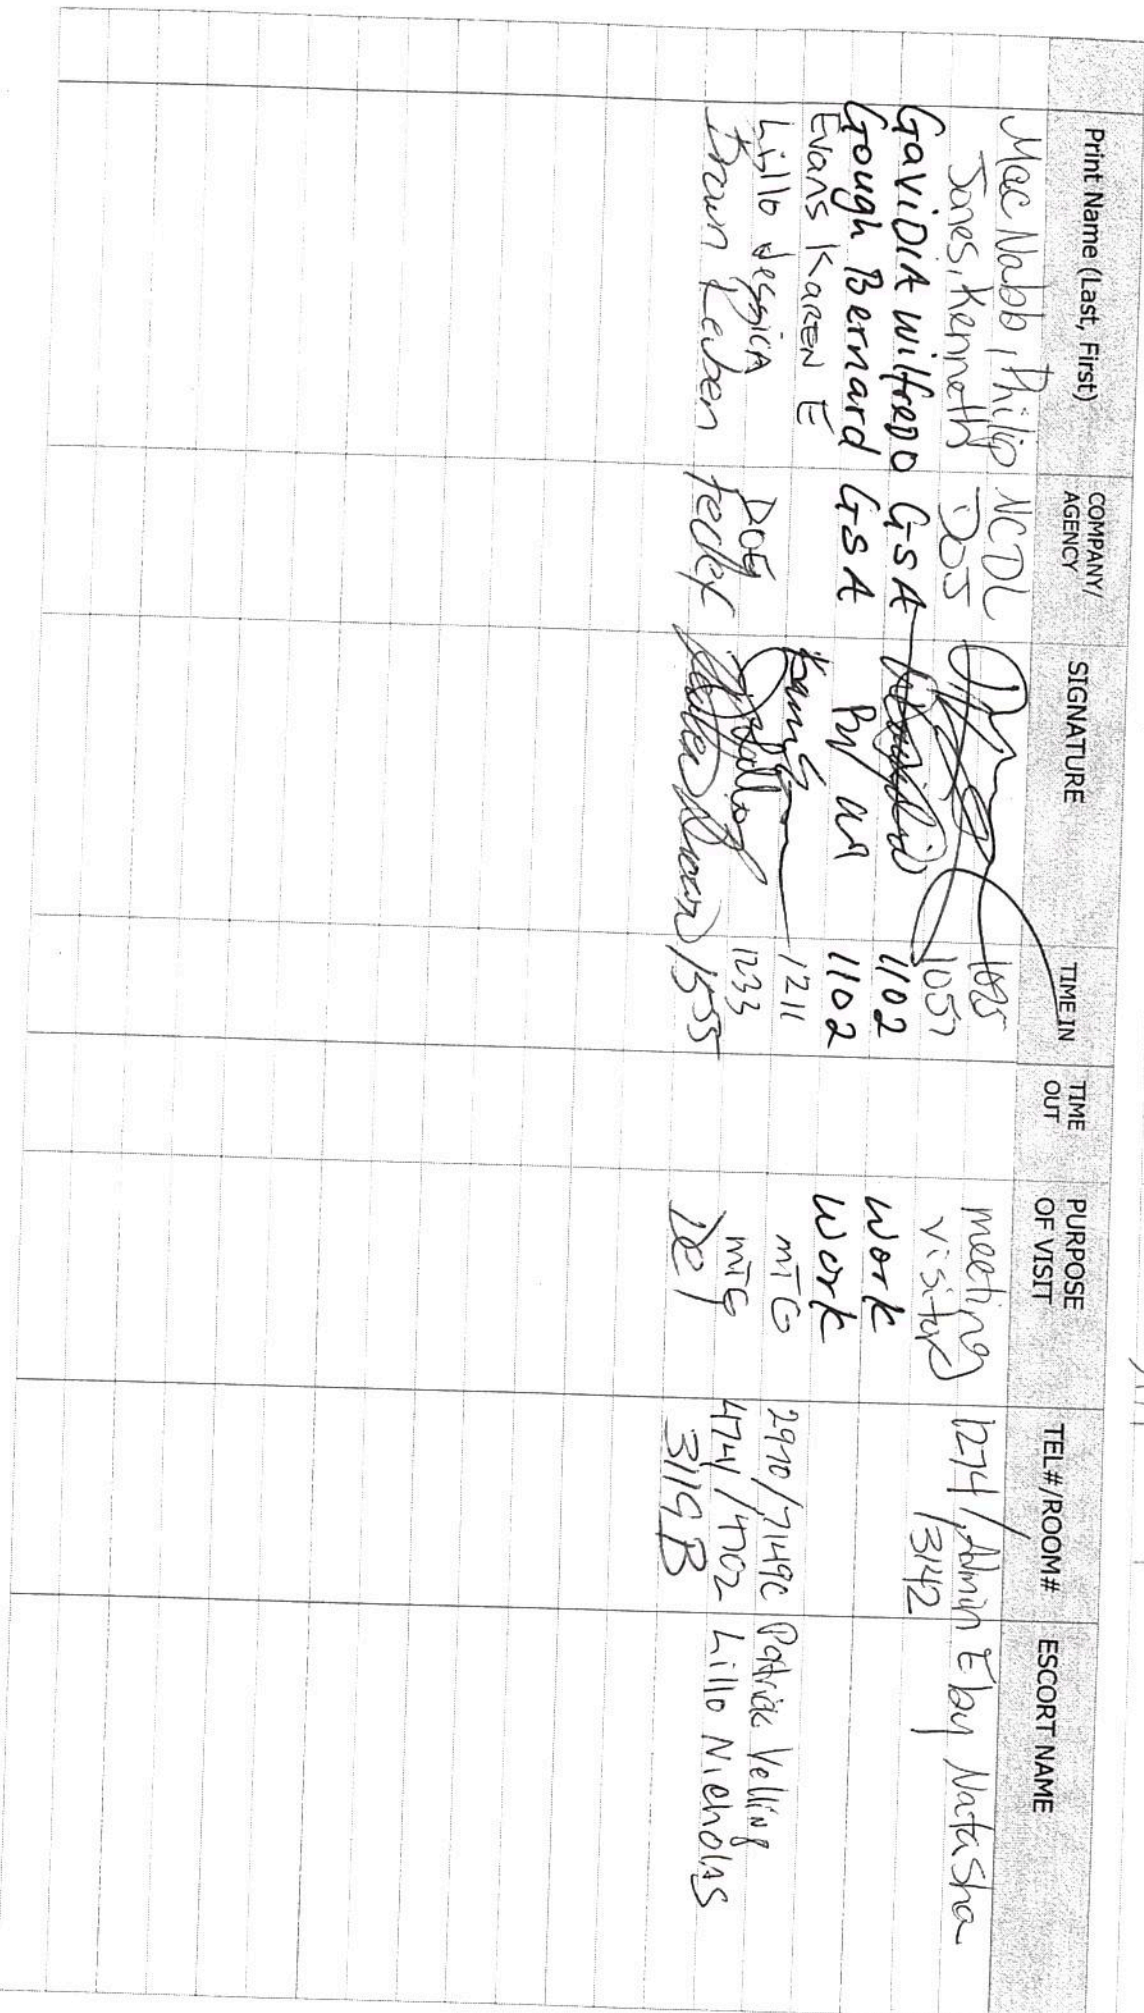 Print Name (Last, First) COMPANY/ AGENCY SIGNATURE TIME IN TIME OUT PURPOSE OF VISIT TEL#/ROOM# ESCORT NAME
MacNabb, Philip NCDL meeting 1274/Admin Eby Natasha
Jones, Kenneth DOJ 1057 visitor 13142
GaviDIA wilfredo GSA 1102 work
Gough Bernard GSA 1102 Work
Evans KAREN E 1211 mTG 2970/7149C Patrick Velling
Lillo JessicA DOE 1233 mTG 4741/4702 Lillo NicholAS
Brown Reuben fedex 1555 Del 3119B